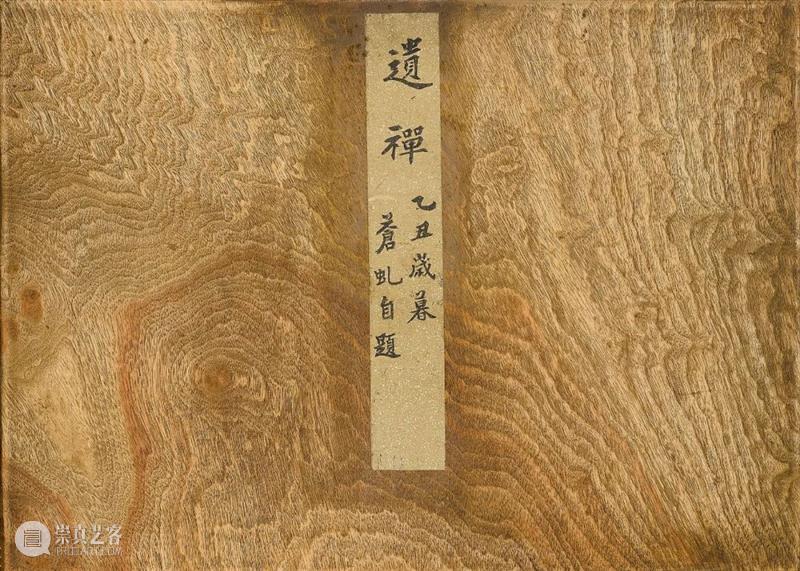 遺禪
乙丑歲暮
蒼虬自題
崇真艺客
TRUEART.COM